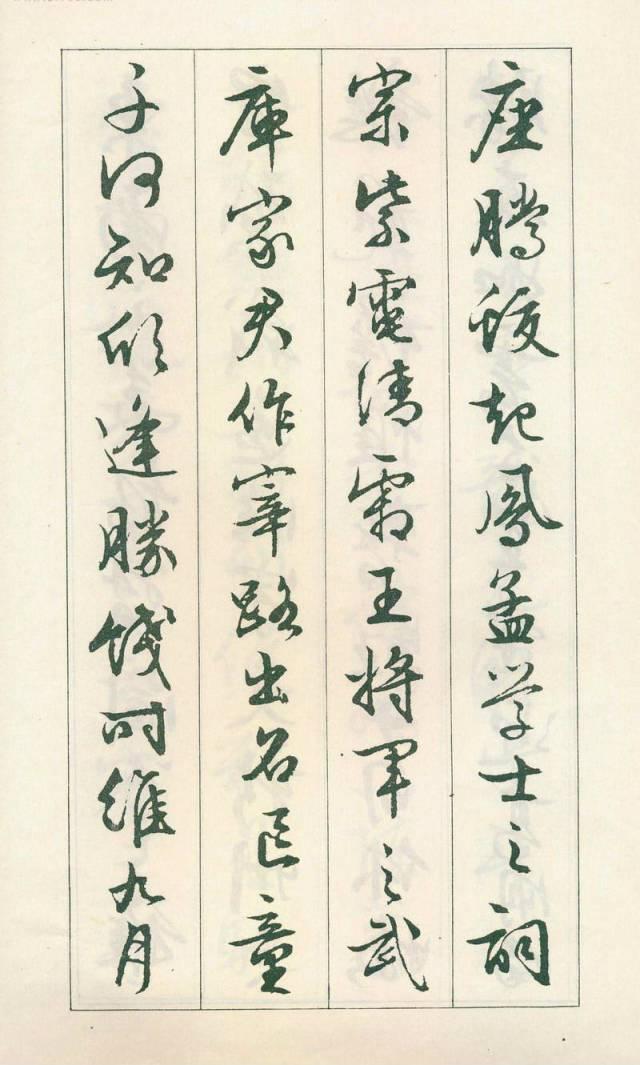 座腾蛟起鳳孟学士之詞
宗紫電清霜王将軍之武
庫家君作宰路出名區童
子何知躬逢勝餞时維九月